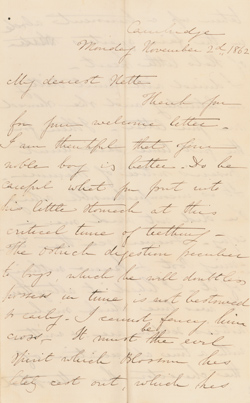 Cambridge
Monday November 2d, 1862
My dearest Nette
Thank you
for your welcome letter.
I am thankful that your
noble boy is better. Do be
careful what you put into
his little stomach at this
critical time of teething.
The Ostrich digestion peculiar
to boys which he will doubtless
possess in time, is not bestowed
so early. I cannot fancy him
cross. It must be the evil
spirit which Blossom has
lately cast out, which has